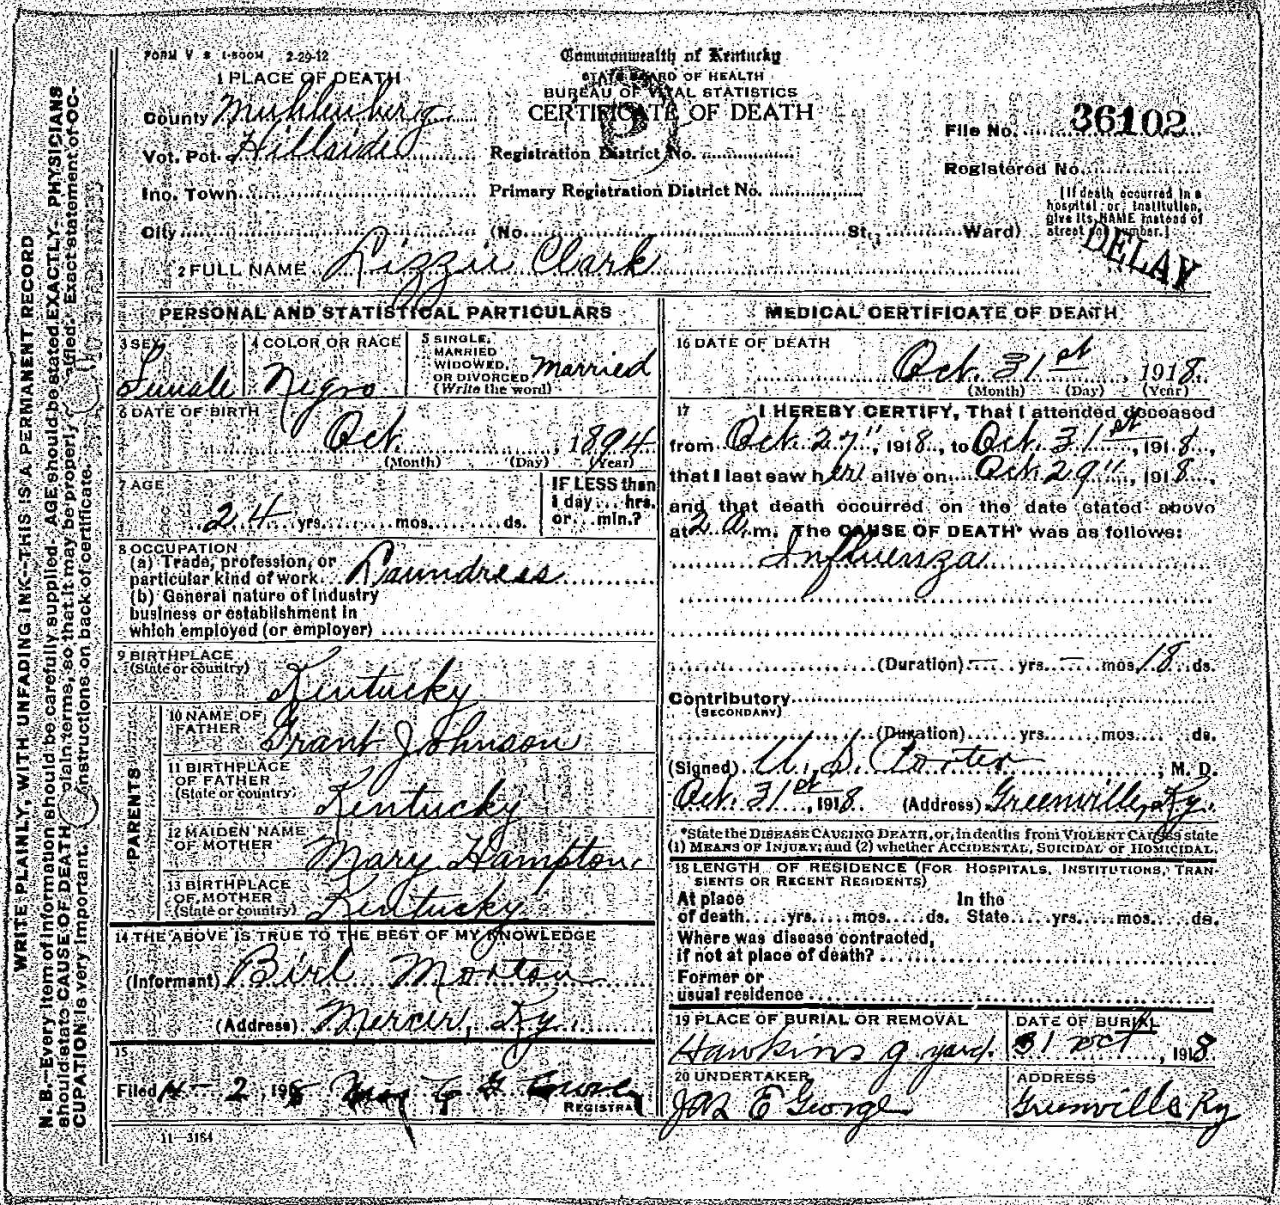 FORM V S 1-500M 2-29-12
Commonwealth of Kentucky
STATE BOARD OF HEALTH
BUREAU OF VITAL STATISTICS
CERTIFICATE OF DEATH
1 PLACE OF DEATH
County Muhlenberg
Vot. Pct. Hillside
Inc. Town
City
Registration District No.
Primary Registration District No.
(No. St., Ward)
File No. 36102
Registered No.
[If death occurred in a
hospital or institution,
give its NAME instead of
street and number.]
DELAY
2 FULL NAME Lizzie Clark
PERSONAL AND STATISTICAL PARTICULARS
3 SEX
Female
4 COLOR OR RACE
Negro
5 SINGLE,
MARRIED
WIDOWED,
OR DIVORCED
(Write the word)
Married
6 DATE OF BIRTH
Oct. 1894
(Month) (Day) (Year)
7 AGE
24 yrs. mos. ds.
IF LESS than
1 day ... hrs.
or ... min.?
8 OCCUPATION
(a) Trade, profession, or
particular kind of work Laundress
(b) General nature of industry
business or establishment in
which employed (or employer)
9 BIRTHPLACE
(State or country)
Kentucky
PARENTS
10 NAME OF
FATHER
Grant Johnson
11 BIRTHPLACE
OF FATHER
(State or country)
Kentucky
12 MAIDEN NAME
OF MOTHER
Mary Hampton
13 BIRTHPLACE
OF MOTHER
(State or country)
Kentucky
14 THE ABOVE IS TRUE TO THE BEST OF MY KNOWLEDGE
(Informant) Birl Morton
(Address) Mercer, Ky.
15
Filed 2, 1918
REGISTRAR
11-3184
MEDICAL CERTIFICATE OF DEATH
16 DATE OF DEATH
Oct. 31st 1918
(Month) (Day) (Year)
17 I HEREBY CERTIFY, That I attended deceased
from Oct. 27", 1918, to Oct. 31st, 1918,
that I last saw her alive on Oct. 29", 1918,
and that death occurred on the date stated above
at 2 a.m. The CAUSE OF DEATH* was as follows:
Influenza
(Duration) — yrs. — mos. 18 ds.
Contributory
(SECONDARY)
(Duration) yrs. mos. ds.
(Signed) U. S. Porter, M. D.
Oct. 31st, 1918 (Address) Greenville, Ky.
*State the DISEASE CAUSING DEATH, or, in deaths from VIOLENT CAUSES state
(1) MEANS OF INJURY; and (2) whether ACCIDENTAL, SUICIDAL or HOMICIDAL.
18 LENGTH OF RESIDENCE (FOR HOSPITALS, INSTITUTIONS, TRAN-
SIENTS OR RECENT RESIDENTS)
At place In the
of death yrs. mos. ds. State yrs. mos. ds.
Where was disease contracted,
if not at place of death?
Former or
usual residence
19 PLACE OF BURIAL OR REMOVAL
Hawkins g. yard.
DATE OF BURIAL
31 oct, 1918
20 UNDERTAKER
Jas E George
ADDRESS
Greenville Ky
WRITE PLAINLY, WITH UNFADING INK--THIS IS A PERMANENT RECORD
N. B.—Every item of information should be carefully supplied. AGE should be stated EXACTLY. PHYSICIANS
should state CAUSE OF DEATH plain terms, so that it may be properly Exact statement of OC-
CUPATION is very important. instructions on back of certificate.